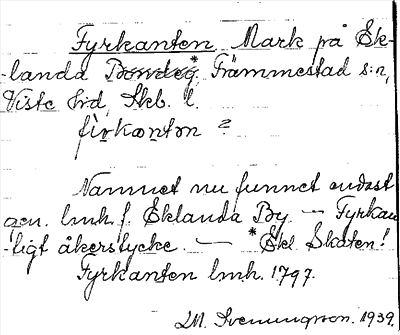 Fyrkanten Mark på Ek-
-landa Bondeg*, Främmestad s:n,
Viste hd, Skb. l.
fìrkantən ?
Namnet nu funnet endast
gen. lmh. f. Eklanda By. — Fyrkan-
-ligt åkerstycke. — *Ekl. Skaten!
Fyrkanten lmh. 1797.
LM. Svenungsson. 1939.